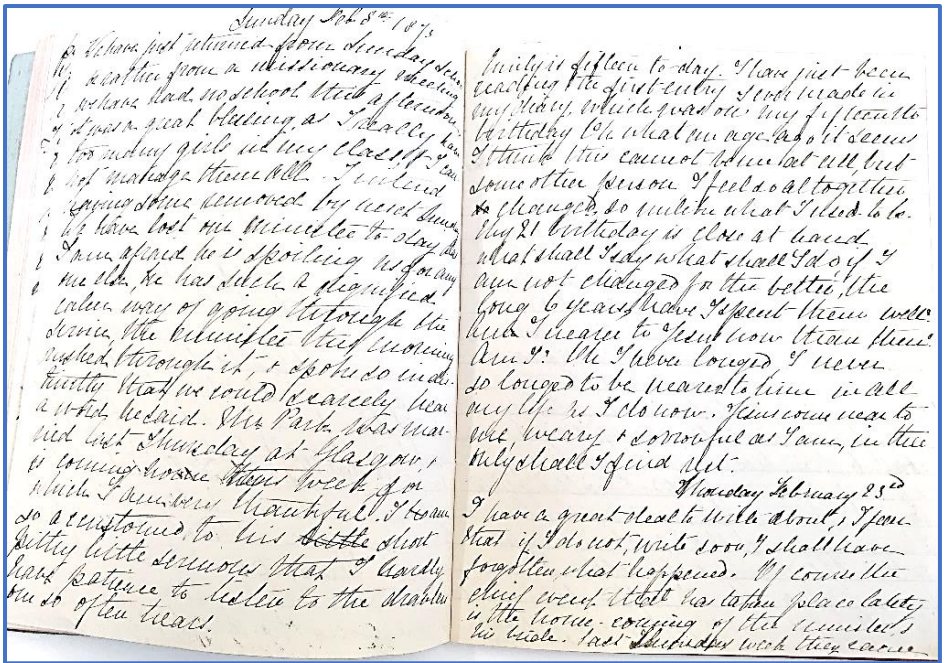 Sunday Feb 8th 187
We have just returned from Sunday School
& rather from a missionary meeting
we have had no school this afternoon
it was a great blessing as I really have
too many girls in my class & I can
not manage them all. I intend
having some removed by next Sunday
We have lost our minister to-day &
I am afraid he is spoiling us for any
one else, he has such a dignified
calm way of going through the
service, the minister this morning
rushed through it, & spoke so indis-
tinctly that we could scarcely hear
a word he said. Mr Park was mar-
ried last Thursday at Glasgow, &
is coming home this week for
which I am very thankful. I am
so accustomed to his little short
pithy little sermons that I hardly
have patience to listen to the
one so often hears.
Emily is fifteen to-day. I have just been
reading the first entry I ever made in
my diary, which was on my fifteenth
birthday Oh what an age ago it seems
I think this cannot be me at all, but
some other person I feel so altogether
changed, so unlike what I used to be.
My 21 birthday is close at hand
what shall I say what shall I do if I
am not changed for the better, the
long 6 years, have I spent them well?
Am I nearer to Jesus now than then?
Am I? Oh I never longed, I never
so longed to be nearer to him in all
my life as I do now. Jesus come near to
me, weary & sorrowful as I am, in thee
only shall I find rest
Monday February 23rd
I have a great deal to write about, & I fear
that if I do not, write soon, I shall have
forgotten, what happened. Of course the
chief event that has taken place lately
is the home-coming of the minister &
his bride. Last Thursday week they came